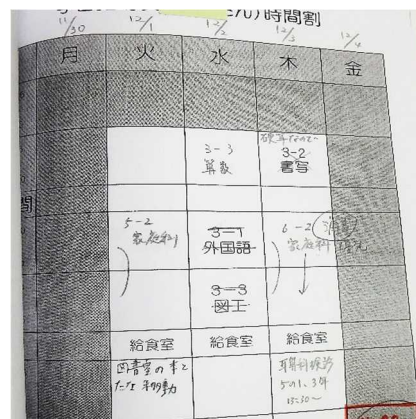 時間割
11/30 12/1 12/2 12/3 12/4
月 火 水 木 金
3-3
算数
3-2
書写
間
5-2
家庭科
3-1
外国語
6-2
家庭科
3-3
図工
給食室 給食室 給食室
図書室の本と
たな 移動
耳鼻科検診
5の1、3年
13:30~